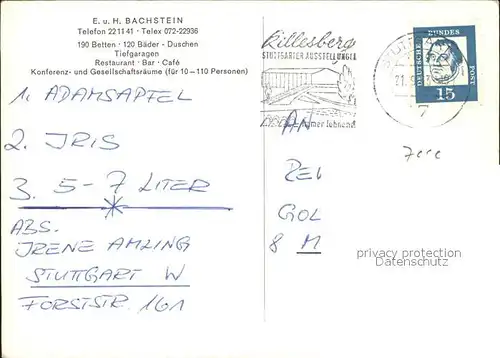 E. u. H. BACHSTEIN
Telefon 22 11 41 · Telex 072-22936
190 Betten · 120 Bäder - Duschen
Tiefgaragen
Restaurant · Bar · Café
Konferenz- und Gesellschaftsräume (für 10—110 Personen)
1. ADAMSAPFEL
2. IRIS
3. 5-7 LITER
ABS.
IRENE AMLING
STUTTGART W
FORSTSTR. 161
Killesberg
STUTTGARTER AUSSTELLUNGEN
immer lohnend
DEUTSCHE BUNDESPOST
15
AN
8 M
privacy protection
Datenschutz